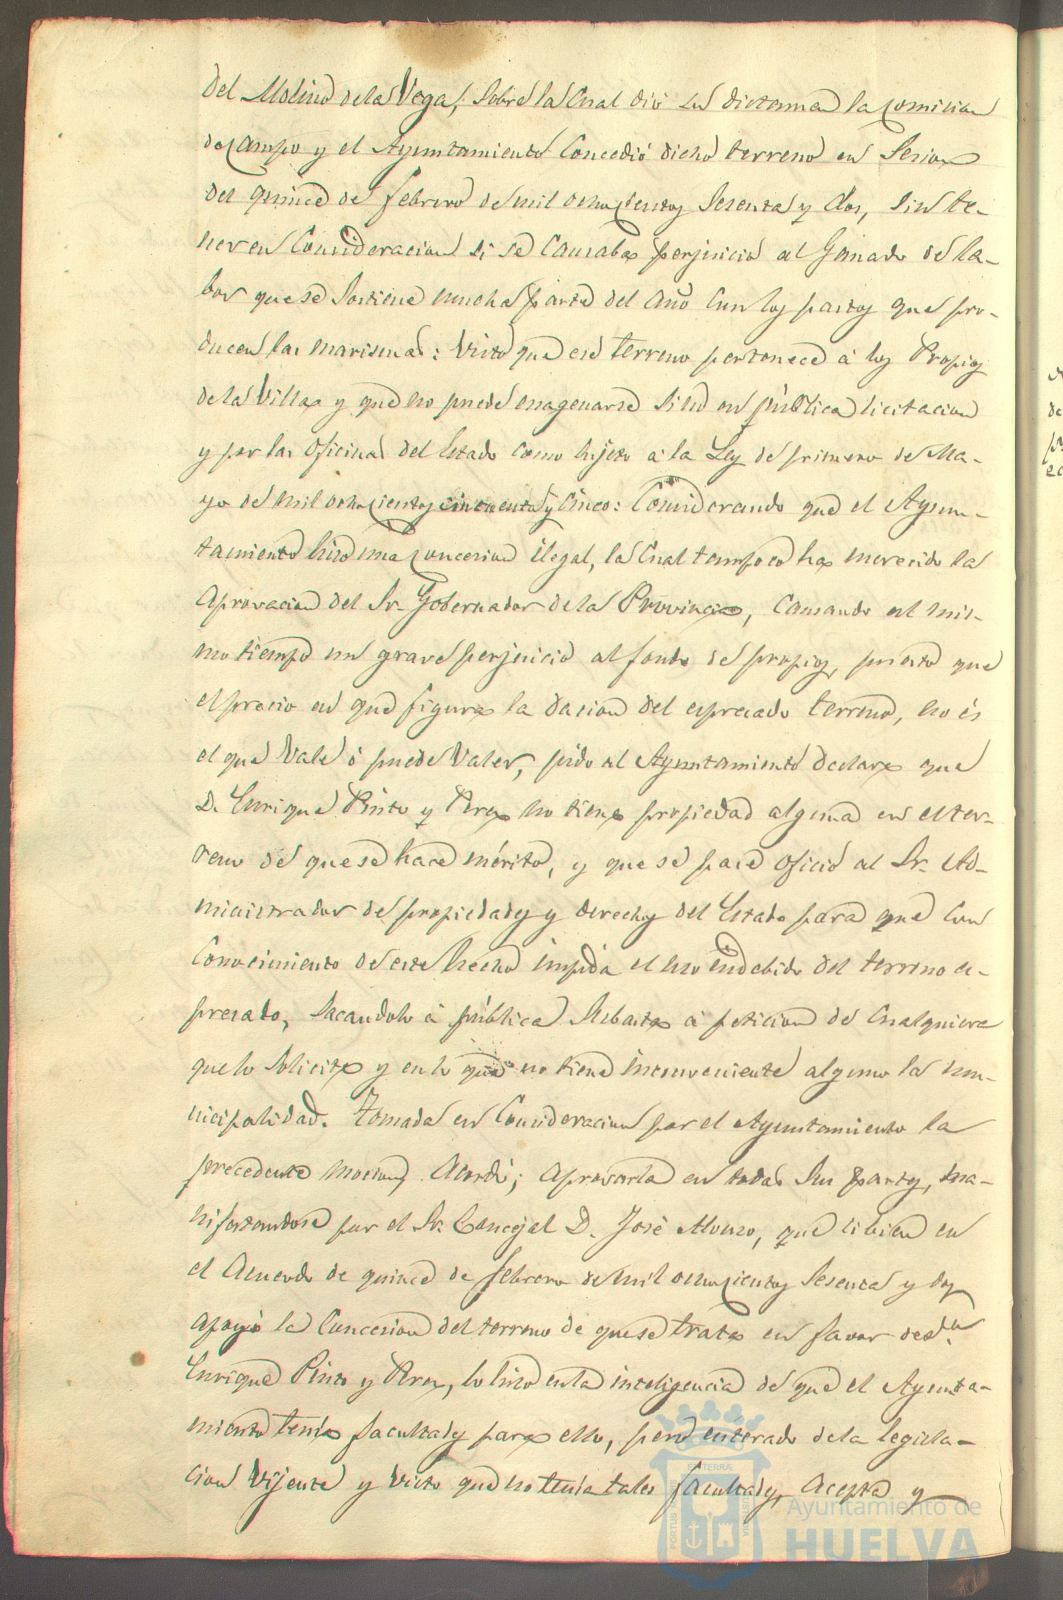 del Molino de la Vega, sobre la cual dió su dictamen la comision
de campo y el Ayuntamiento concedió dicho terreno en sesion
del quince de febrero de mil ochocientos sesenta y dos, sin te-
ner en consideracion si se causaba perjuicio al ganado de la-
bor que se sostiene mucha parte del año con los pastos que pro-
ducen las marismas: Visto que ese terreno pertenece á los Propios
de la Villa y que no puede enagenarse sinó en pública licitacion
y por las oficinas del Estado como sujeto a la Ley de primero de Ma-
yo de mil ochocientos cincuenta y cinco: Considerando que el Ayun-
tamiento hizo una concesion ilegal, la cual tampoco ha merecido la
aprovacion del Sr. Gobernador de la Provincia, causando al mis-
mo tiempo un grave perjuicio al fondo de propios, puesto que
el precio en que figura la dacion del espresado terreno, no es
el que vale ó puede valer, pido al Ayuntamiento declare que
D. Enrique Pinto y Perez no tiene propiedad alguna en el ter-
reno de que se hace mérito, y que se pase oficio al Sr. Ad-
ministrador de propiedades y derechos del Estado para que con
conocimiento de este hecho impida el uso indebido del terreno es-
presado, sacandolo á pública subasta á peticion de cualquiera
que lo solicite y en lo que no tiene inconveniente alguno la mu-
nicipalidad. Tomada en consideracion por el Ayuntamiento la
precedente mocion, Acordó; aprovarla en todas sus partes, ma-
nifestandose por el Sr. Concejal D. José Alonso, que si bien en
el acuerdo de quince de febrero de mil ochocientos sesenta y dos
apoyó la concesion del terreno de que se trata en favor de Dn.
Enrique Pinto y Perez, lo hizo en la inteligencia de que el Ayunta-
miento tenia facultades para ello, pero enterado de la legisla-
cion vijente y visto que no tenia tales facultades, acepta y
Ayuntamiento de
HUELVA